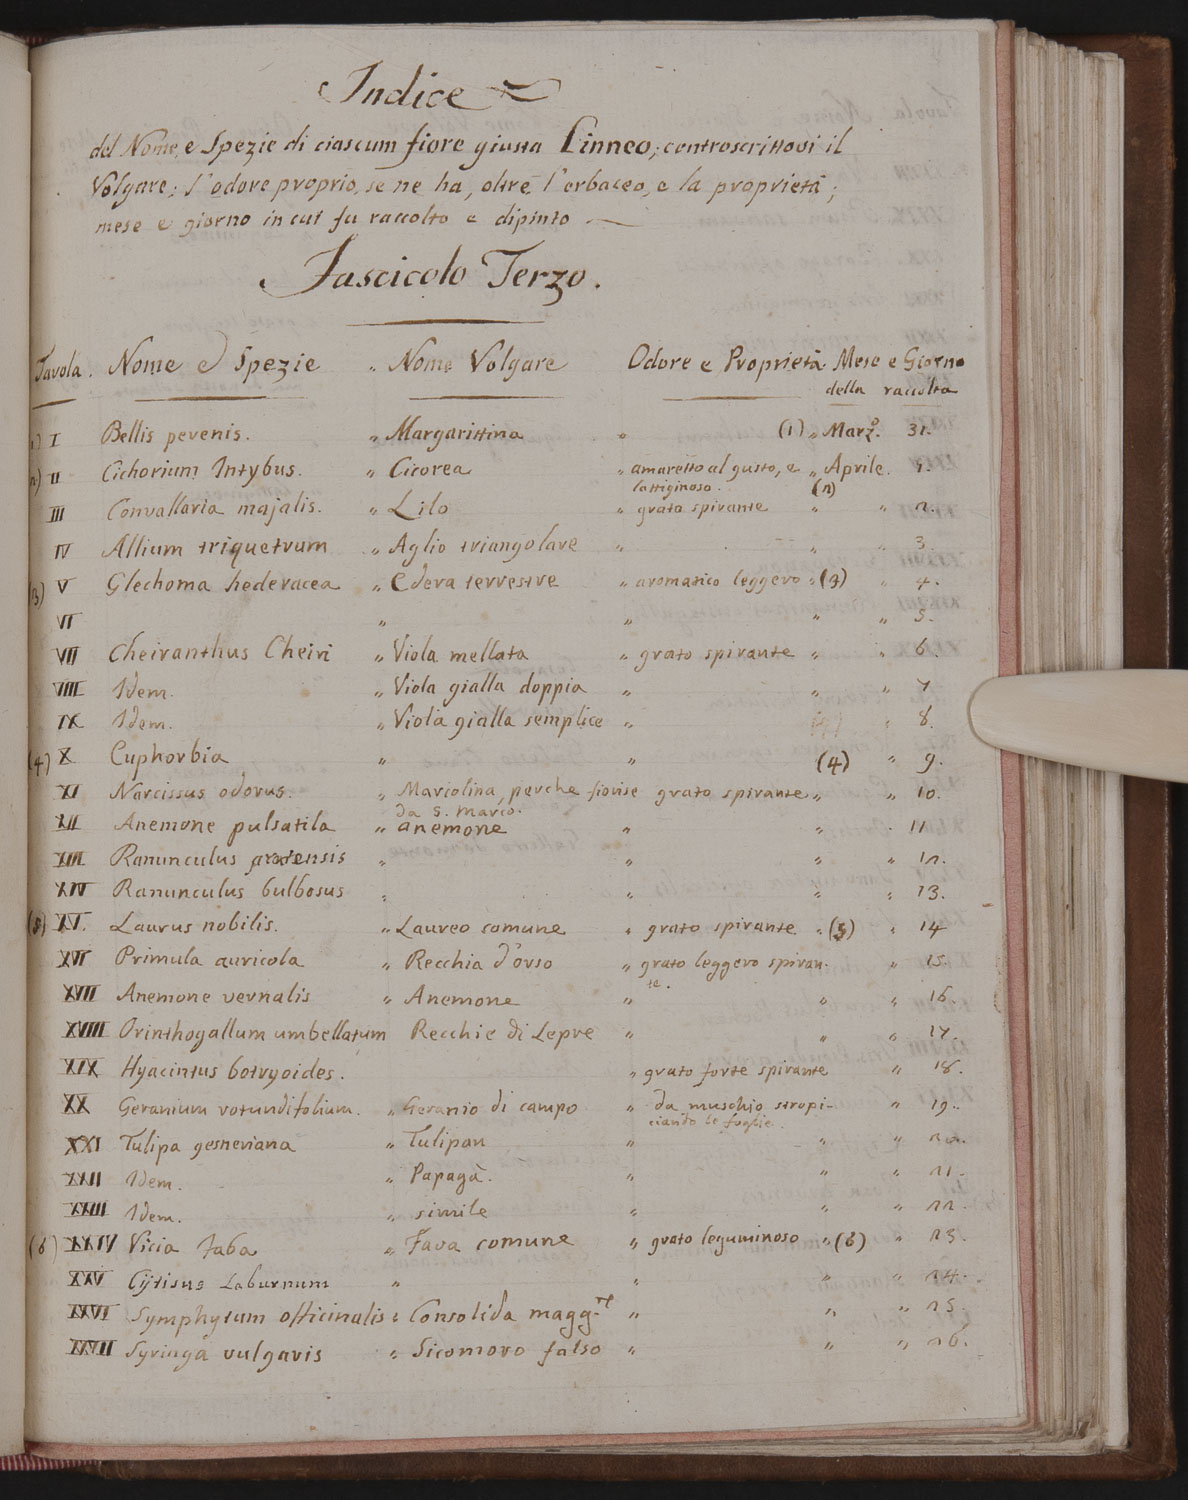 Indice
del Nome, e Spezie di ciascum fiore giusta Linneo; controscrittovi il
Volgare; l'odore proprio, se ne ha, oltre l'erbaceo, e la proprietà;
mese e giorno in cui fu raccolto e dipinto
Fascicolo Terzo.
Tavola. Nome e Spezie " Nome Volgare Odore e Proprietà Mese e Giorno
della raccolta
1) I Bellis perenis. " Margarittina " (1) " Marzo. 31.
2) II Cichorium Intybus. " Cicorea " amaretto al gusto, e " Aprile. 1.
lattiginoso. (2)
III Convallaria majalis. " Lilo " grata spirante " " 2.
IV Allium triquetrum " Aglio triangolare " " " 3
(3) V Glechoma hederacea " Edera terrestre " aromatico leggero " (3) " 4.
VI " " " " 5.
VII Cheiranthus Cheiri " Viola mellata " grato spirante " " 6.
VIII Idem. " Viola gialla doppia " " " 7
IX Idem. " Viola gialla semplice " " 8.
(4) X Euphorbia " " (4) " 9.
XI Narcissus odorus. " Marcolina, perche fiorise grato spirante " " 10.
da S. Marco.
XII Anemone pulsatila " anemone " " 11
XIII Ranunculus pratensis " " " " 12.
XIV Ranunculus bulbosus " " " " 13.
(5) XV. Laurus nobilis. " Laureo comune " grato spirante " (5) " 14
XVI Primula auricola " Recchia d'orso " grato leggero spiran- " 15.
te.
XVII Anemone vernalis " Anemone " " " 16.
XVIII Orinthogallum umbellatum Recchie di Lepre " " " 17.
XIX Hyacintus botryoides. " grato forte spirante " 18.
XX Geranium rotundifolium. " Geranio di campo " da muschio stropi- " 19.
ciando le foglie.
XXI Tulipa gesneriana " Tulipan " " " 20.
XXII Idem. " Papagà. " " " 21.
XXIII Idem. " simile " " " 22.
(6) XXIV Vicia faba " Fava comune " grato leguminoso " (6) " 23.
XXV Cytisus Laburnum " " " " 24.
XXVI Symphytum officinalis " Consolida magg.re " " " 25.
XXVII Syringa vulgaris " Sicomoro falso " " " 26.